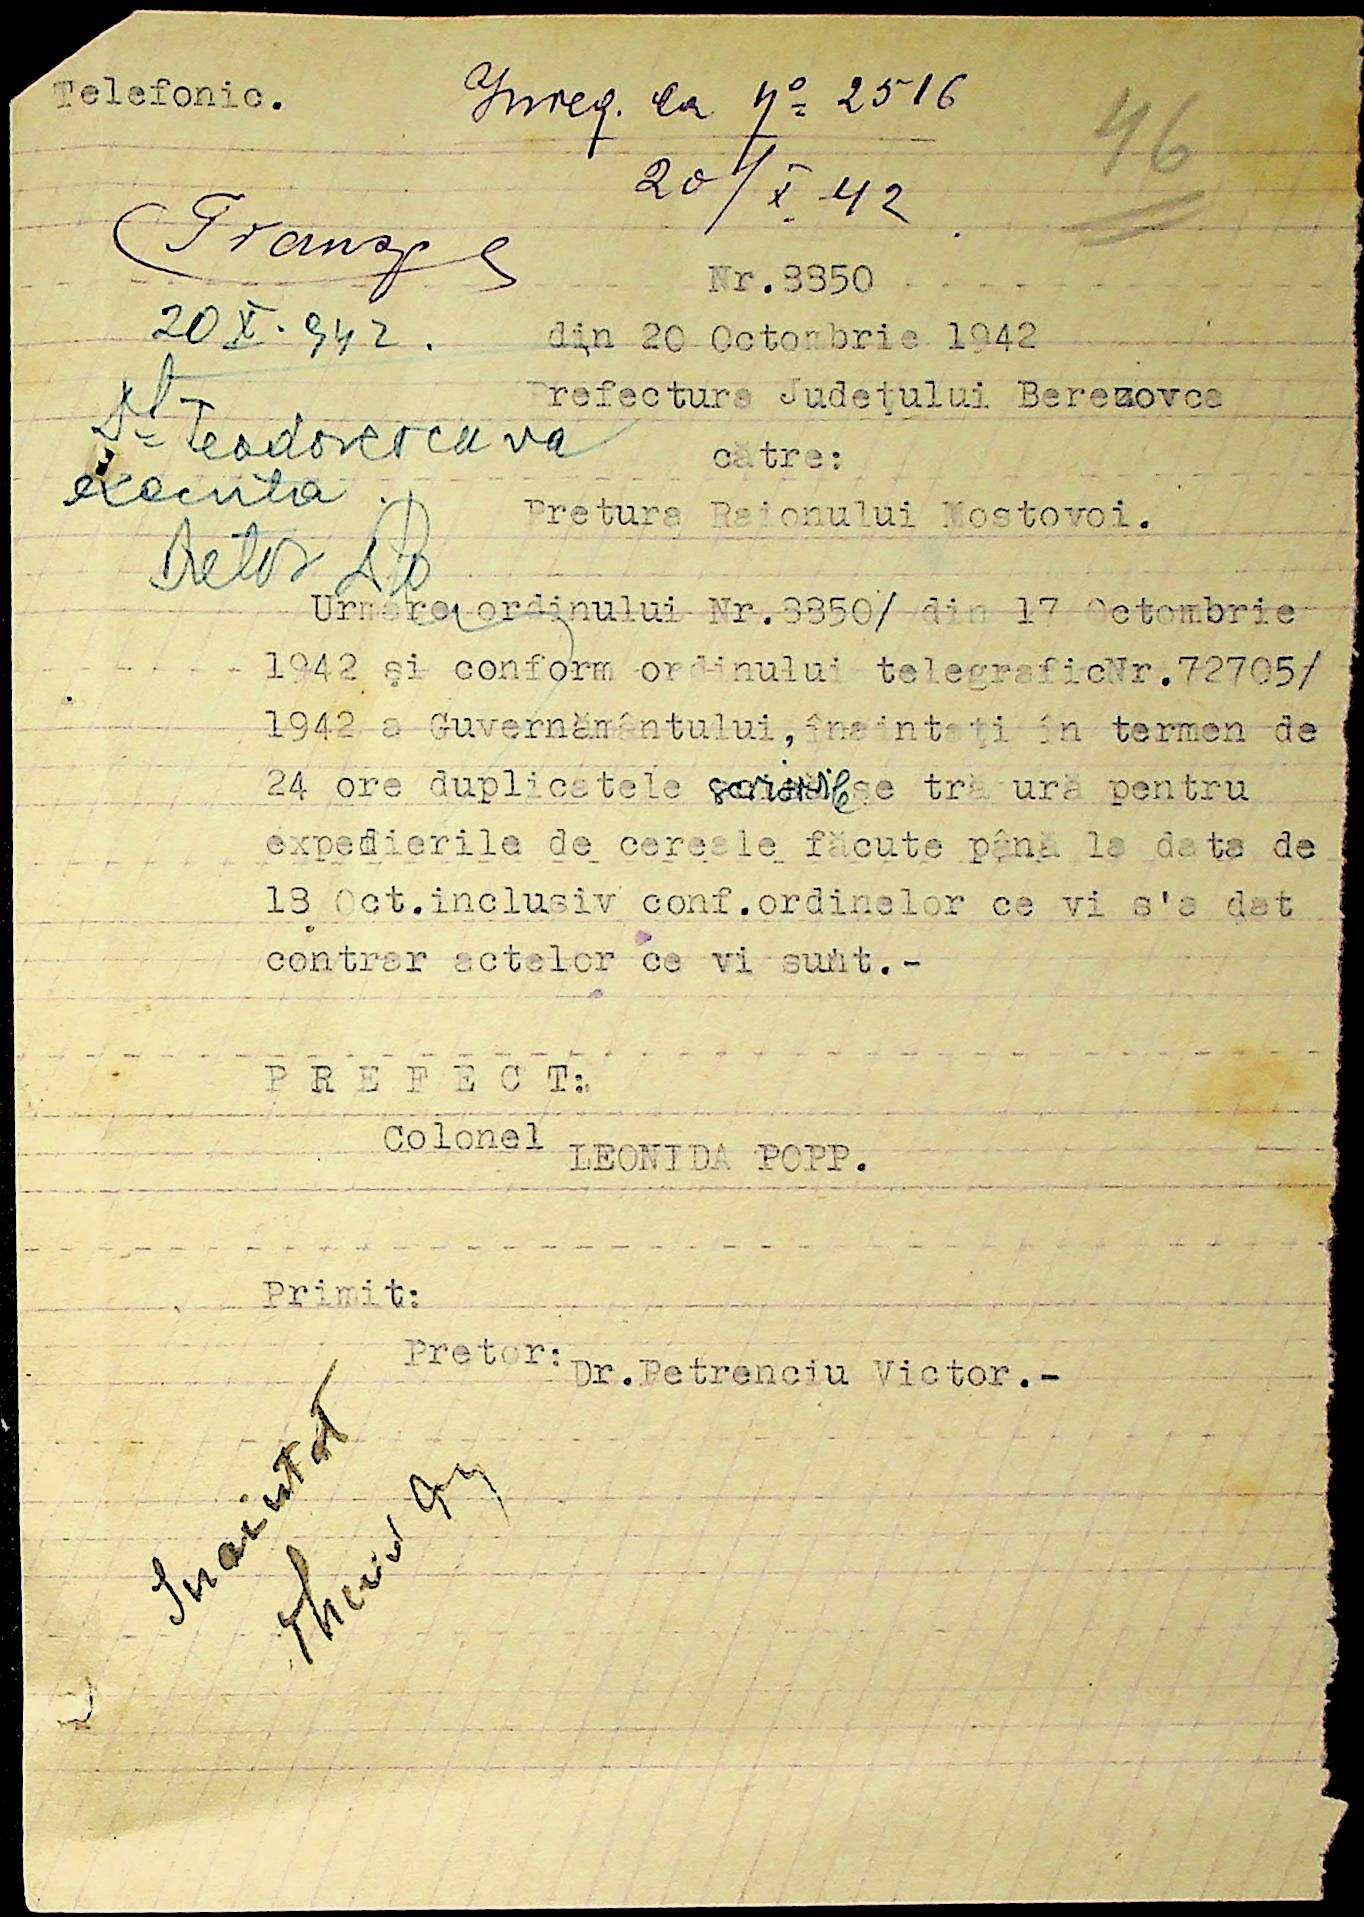 Telefonic.
Inreg. la No 2516
20/X 42.
46
Transp
20 X. 942.
Nr.8850
din 20 Octombrie 1942
Dl Teodorescu va
executa.
Pretor
Prefectura Judeţului Berezovca
către:
Pretura Raionului Mostovoi.
Urmare ordinului Nr.8850/ din 17 Octombrie
1942 şi conform ordinului telegraficNr.72705/
1942 a Guvernământului,înaintaţi în termen de
24 ore duplicatele scrisorile se tră ură pentru
expedierile de cereale făcute până la data de
18 Oct.inclusiv conf.ordinelor ce vi s'a dat
contrar actelor ce vi sunt.-
P R E F E C T:
Colonel LEONIDA POPP.
Primit:
Pretor: Dr.Petrenciu Victor.-
Inaintat